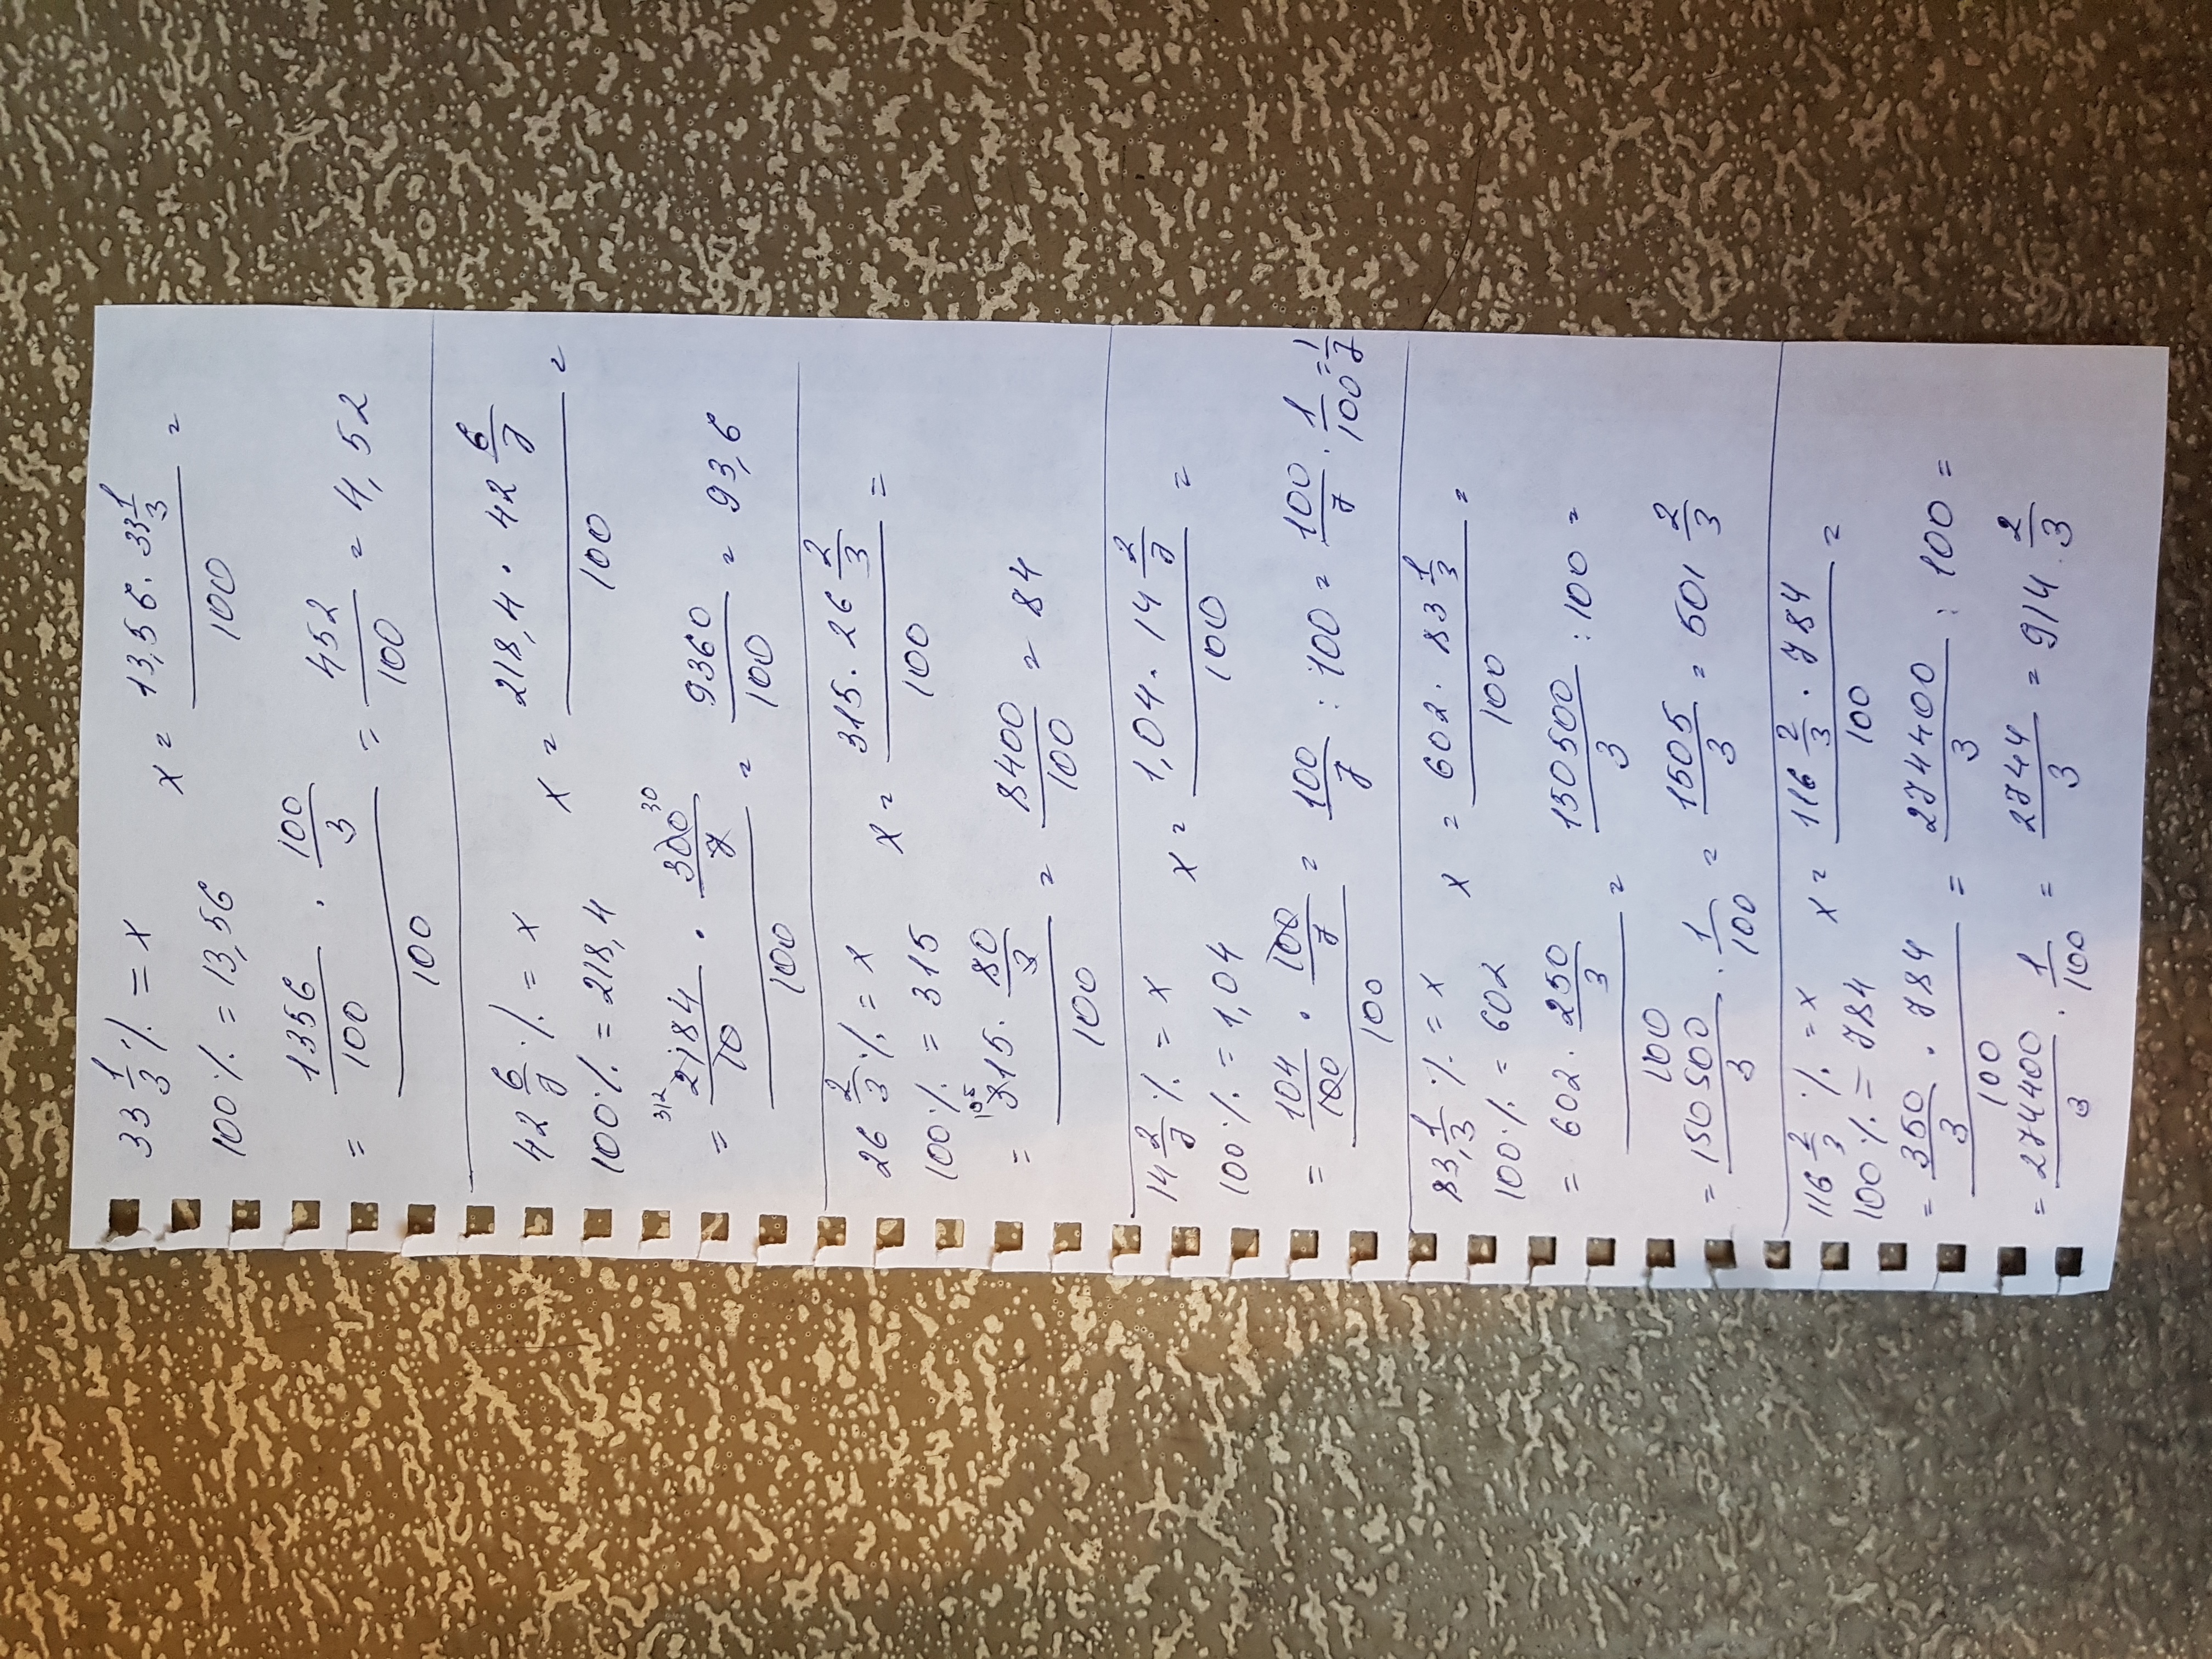 33 1/3 % = x x = 13,56 · 33 1/3 / 100 =
100 % = 13,56
= 1356/100 · 100/3 / 100 = 452/100 = 4,52
42 6/7 % = x x = 218,4 · 42 6/7 / 100 =
100 % = 218,4
= 312 2184/10 · 300/7 30 / 100 = 9360/100 = 93,6
26 2/3 % = x x = 315 · 26 2/3 / 100 =
100 % = 315
= 105 315 · 80/3 / 100 = 8400/100 = 84
14 2/7 % = x x = 1,04 · 14 2/7 / 100 =
100 % = 1,04
= 104/100 · 100/7 / 100 = 100/7 : 100 = 100/7 · 1/100 = 1/7
83 1/3 % = x x = 602 · 83 1/3 / 100 =
100 % = 602
= 602 · 250/3 / 100 = 150500/3 : 100 =
= 150500/3 · 1/100 = 1505/3 = 501 2/3
116 2/3 % = x x = 116 2/3 · 784 / 100 =
100 % = 784
= 350/3 · 784 / 100 = 274400/3 : 100 =
= 274400/3 · 1/100 = 2744/3 = 914 2/3